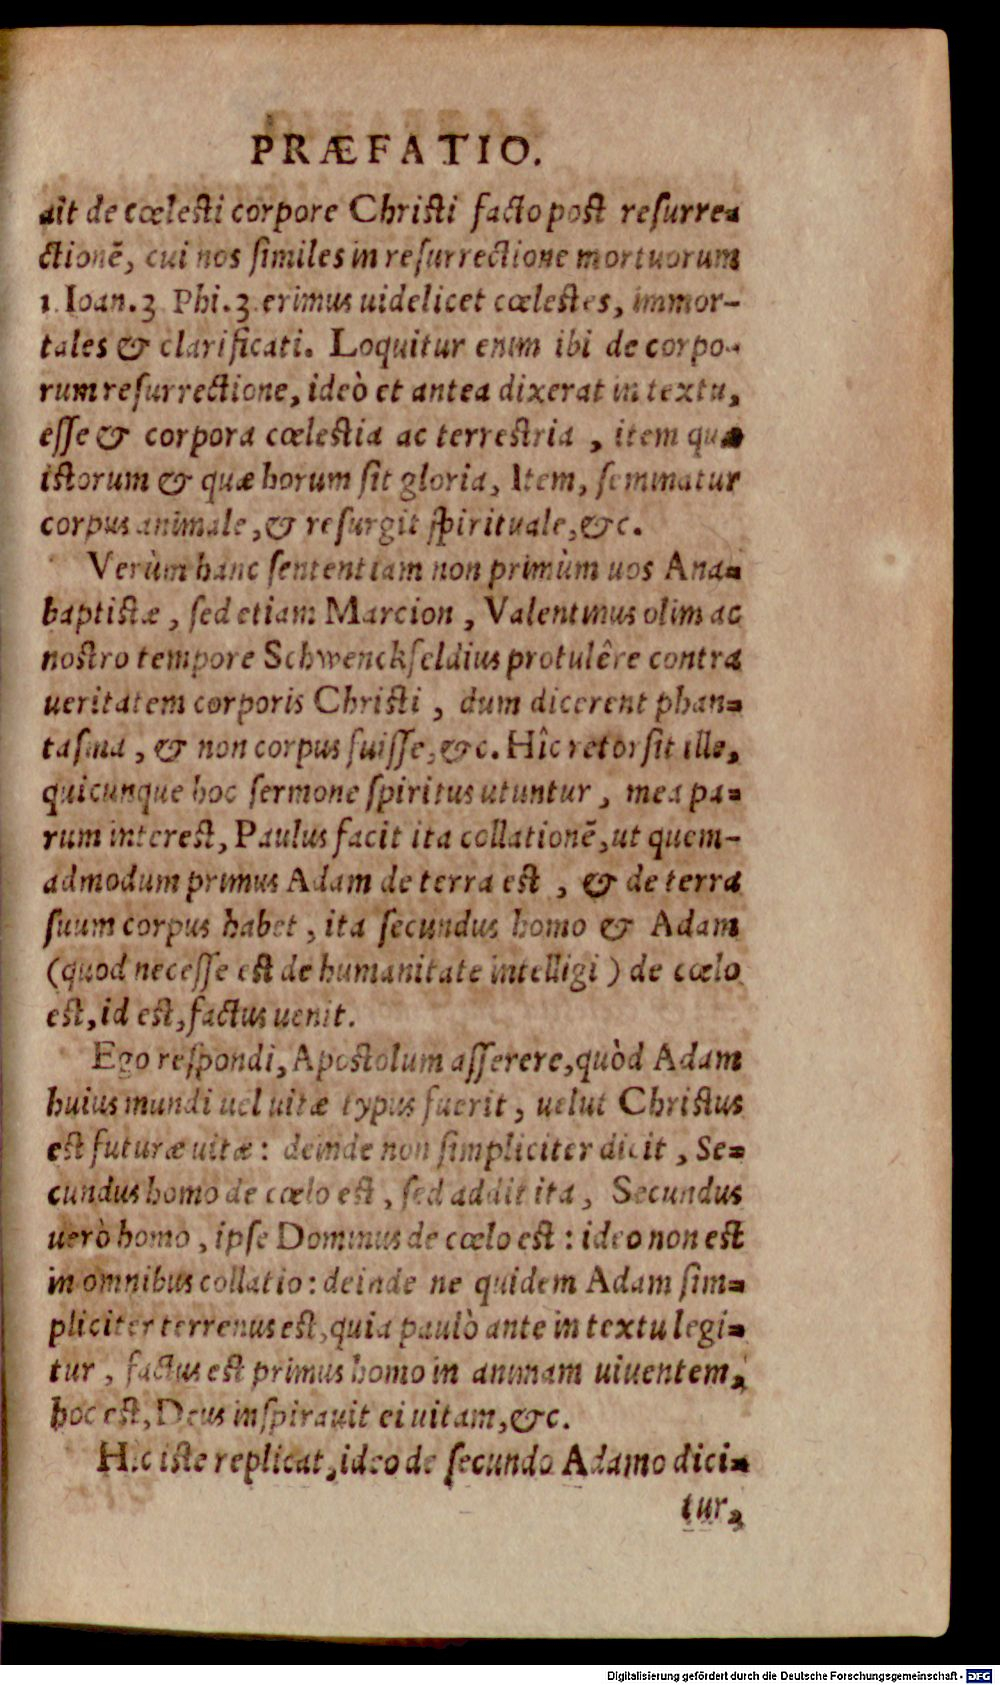 PRÆFATIO.
ait de cœlesti corpore Christi facto post resurre-
ctionē, cui nos similes in resurrectione mortuorum
1. Ioan. 3 Phi. 3. erimus uidelicet cœlestes, immor-
tales & clarificati. Loquitur enim ibi de corpo-
rum resurrectione, ideò et antea dixerat in textu,
esse & corpora cœlestia ac terrestria, item quæ
istorum & quæ horum sit gloria, Item, seminatur
corpus animale, & resurgit spirituale, &c.
Verùm hanc sententiam non primùm uos Ana-
baptistæ, sed etiam Marcion, Valentinus olim ac
nostro tempore Schwenckfeldius protulêre contra
ueritatem corporis Christi, dum dicerent phan-
tasma, & non corpus fuisse, &c. Hîc retorsit ille,
quicunque hoc sermone spiritus utuntur, mea pa-
rum interest, Paulus facit ita collationē, ut quem-
admodum primus Adam de terra est, & de terra
suum corpus habet, ita secundus homo & Adam
(quod necesse est de humanitate intelligi) de cœlo
est, id est, factus uenit.
Ego respondi, Apostolum asserere, quòd Adam
huius mundi uel uitæ typus fuerit, uelut Christus
est futuræ uitæ: deinde non simpliciter dicit, Se-
cundus homo de cœlo est, sed addit ita, Secundus
uerò homo, ipse Dominus de cœlo est: ideo non est
in omnibus collatio: deinde ne quidem Adam sim-
pliciter terrenus est, quia paulò ante in textu legi-
tur, factus est primus homo in animam uiuentem,
hoc est, Deus inspirauit ei uitam, &c.
Hic iste replicat, ideo de secundo Adamo dici-
tur,
Digitalisierung gefördert durch die Deutsche Forschungsgemeinschaft - DFG